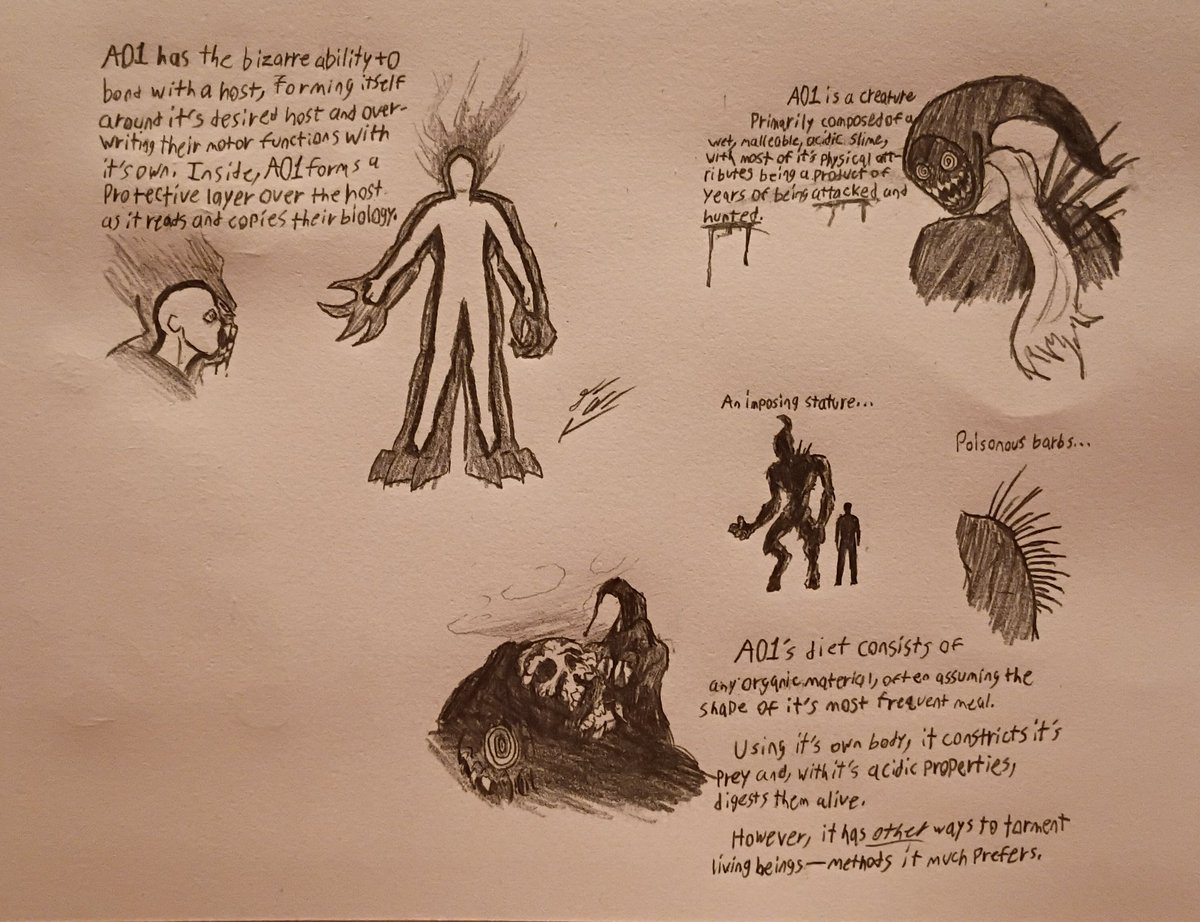 A01 has the bizarre ability to
bond with a host, forming itself
around it's desired host and over-
writing their motor functions with
it's own. Inside, A01 forms a
Protective layer over the host
as it reads and copies their biology.
A01 is a creature
Primarily composed of a
wet, malleable, acidic slime,
with most of it's physical att-
ributes being a product of
years of being attacked and
hunted.
An imposing stature...
Poisonous barbs...
A01's diet consists of
any organic material, often assuming the
shape of it's most frequent meal.
Using it's own body, it constricts it's
prey and, with it's acidic properties,
digests them alive.
However, it has other ways to torment
living beings—methods it much prefers.